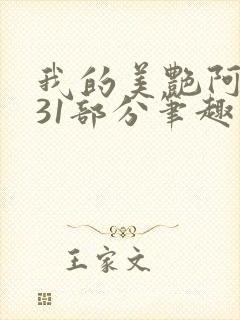 我的美艷阿
31部分筆趣
王家文